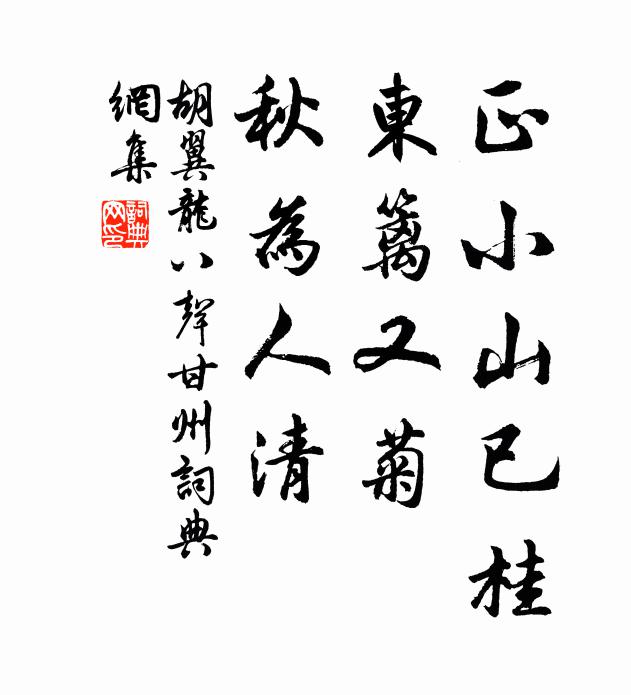 正小山已桂
東籬又菊
秋為人清
胡翼龍八聲甘州詞典
網集
詞典
网印